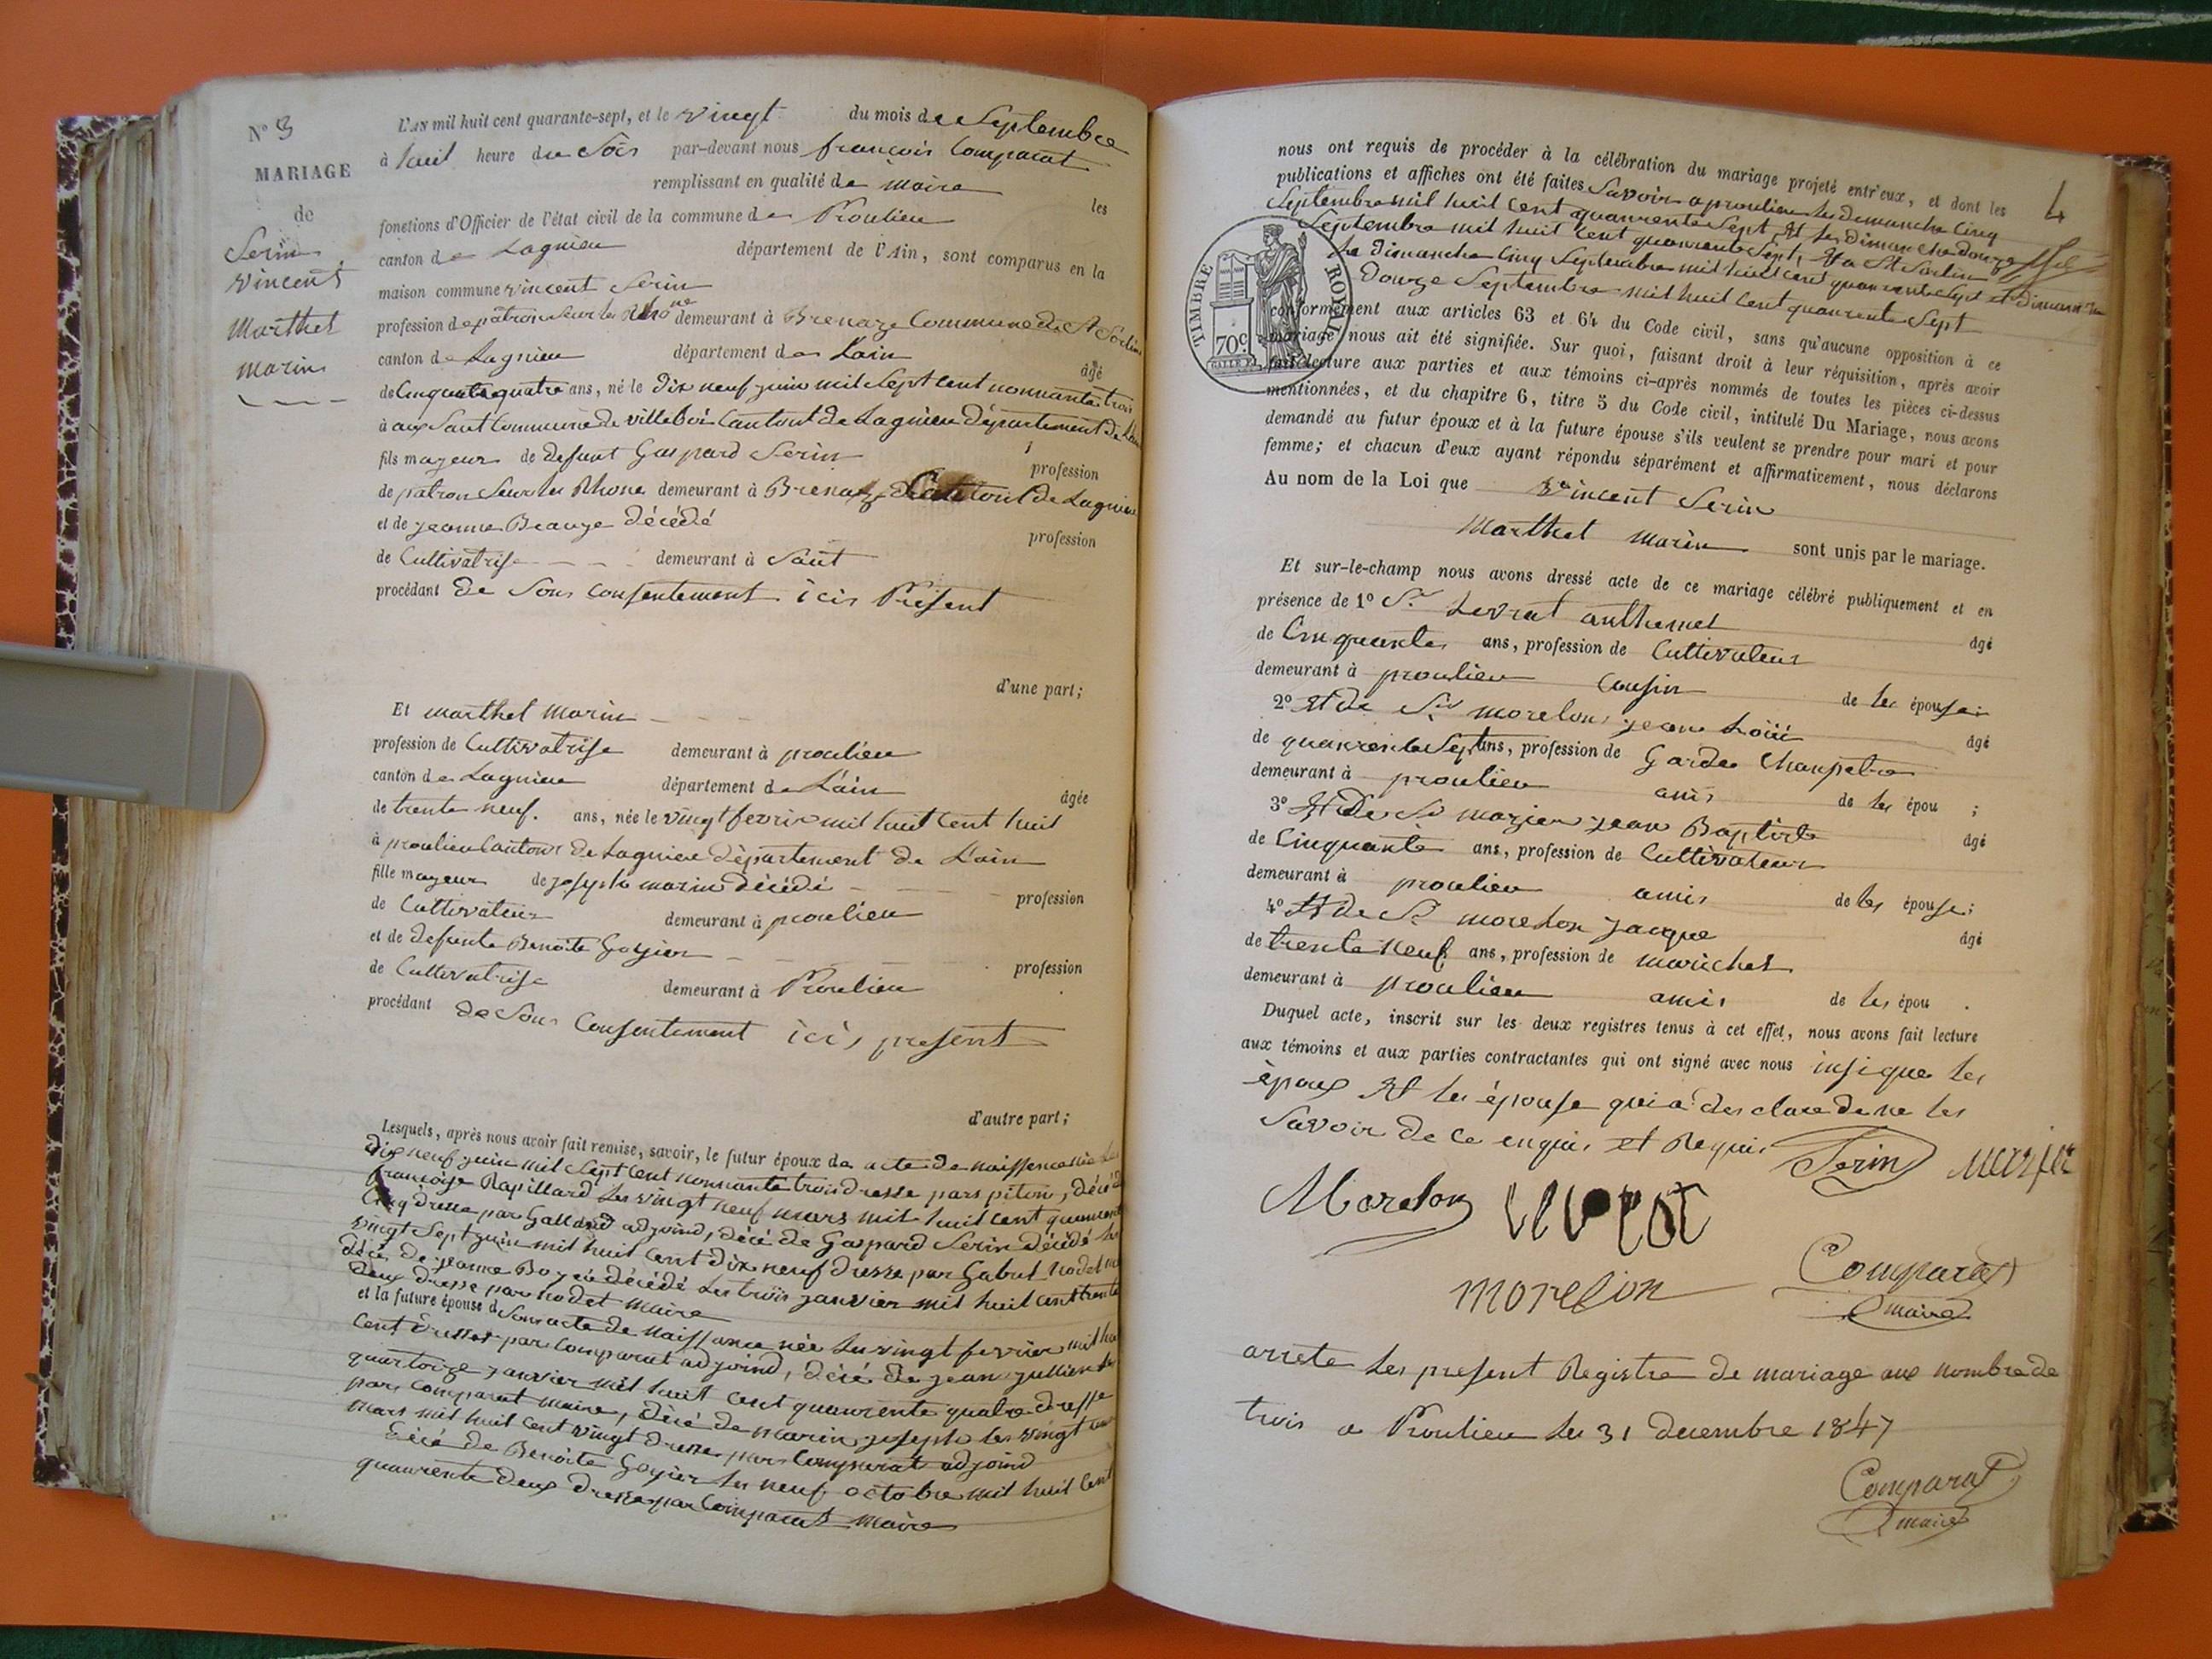 N° 3
MARIAGE
de
Serin
vincent
Marthet
marin
L'AN mil huit cent quarante-sept, et le vingt du mois de Septembre
à huit heure du Soir par-devant nous françois Comparat
remplissant en qualité de maire les
fonctions d'Officier de l'état civil de la commune de Proulieu
canton de Lagnieu département de l'Ain, sont comparus en la
maison commune vincent Serin
profession de patron Sur le Rhône demeurant à Brenaze Commune de St Sorlin
canton de Lagnieu département de Lain âgé
de Cinquate quatre ans, né le Dix neuf juin mil Sept cent nonnante trois
à aux Saut Commune de villeboi Cantont de Lagnieu Département de Lain
fils mayeur de defunt Gaspard Serin profession
de patron Sur le Rhone demeurant à Brenaze Cantont de Lagnieu
et de jeanne décédé profession
de Cultivatrise demeurant à Saut
procédant de Sons Consentement icis Présent
d'une part;
Et marthet marin
profession de Cultivatrise demeurant à proulieu
canton de Lagnieu département de L'ain âgée
de trente neuf. ans, née le vingt fevrie mil huit cent huit
à proulieu Cantont de Lagnieu Département de L'ain
fille mayeur de joseph marin décédé profession
de Cultivateur demeurant à proulieu
et de defunte Benoite Goyier profession
de Cultivatrise demeurant à Proulieu
procédant de Sons Consentement icis present
d'autre part;
Lesquels, après nous avoir fait remise, savoir, le futur époux de acte de naissence née Le
dix neuf juin mil Sept Cent nonnante trois dresse pars piton, décé de
françoise Rapillard Le vingt neuf mars mil huit cent quarente
Cinq dresse par Galland adjoind, décé de Gaspard Serin décédé Le
vingt Sept juin mil huit Cent dix neuf dresse par Gabut Nodet
décé de jeanne décédé Le trois janvier mil huit cent trente
deux dresse par nodet maire
et la future épouse de Sons acte de Naissance née Le vingt fevrier mil hui
Cent dresse par Comparat adjoind, décé de jean jullien Le
quartorze janvier mil huit cent quarente quatre dresse
pars comparat maire, décé de marin joseph Le vingt
mars mil huit cent vingt dresse pars Comparat adjoind
Décé de Benoite Goyier Le neuf octobre mil huit Cent
quarente deux dresse par Comparat maire
4
nous ont requis de procéder à la célébration du mariage projeté entr'eux, et dont les
publications et affiches ont été faites Savoir a proulieu Le dimanche Cinq
Septembre mil huit Cent quarente Sept et Le dimanche douze
Septembre mil huit Cent quarente Sept, Et a St Sorlin
Le Dimanche Cinq Septembre mil huit cent quarente Sept et Dimanche
Douze Septembre mil huit Cent quarente Sept
TIMBRE ROYAL
70c
conformément aux articles 63 et 64 du Code civil, sans qu'aucune opposition à ce
mariage nous ait été signifiée. Sur quoi, faisant droit à leur réquisition, après avoir
fait lecture aux parties et aux témoins ci-après nommés de toutes les pièces ci-dessus
mentionnées, et du chapitre 6, titre 5 du Code civil, intitulé Du Mariage, nous avons
demandé au futur époux et à la future épouse s'ils veulent se prendre pour mari et pour
femme; et chacun d'eux ayant répondu séparément et affirmativement, nous déclarons
Au nom de la Loi que vincent Serin
Marthet Marin sont unis par le mariage.
Et sur-le-champ nous avons dressé acte de ce mariage célébré publiquement et en
présence de 1° Sr Levrat anthemet âgé
de Cinquante ans, profession de Cultivateur
demeurant à proulieu Cousin de Les épouse;
2° Et de Sr morelon jean Loüi âgé
de quanrente Sept ans, profession de Garde Champetre
demeurant à proulieu amis de Les épou ;
3° Et De Sr mozier jean Baptiste âgé
de Cinquante ans, profession de Cultivateur
demeurant à proulieu amis de Les épouse;
4° Et de Sr morelon jacque âgé
de trente neuf ans, profession de maréchet
demeurant à proulieu amis de Les épou .
Duquel acte, inscrit sur les deux registres tenus à cet effet, nous avons fait lecture
aux témoins et aux parties contractantes qui ont signé avec nous insi que Les
époux Et Les épouse qui a des clare de ne Les
Savoir de Ce enquis et Requis Serin
Morelon levrat
morelon Comparat
maire
arrete Les present Registre de mariage aux nombre de
trois a Proulieu Le 31 decembre 1847
Comparat
maire